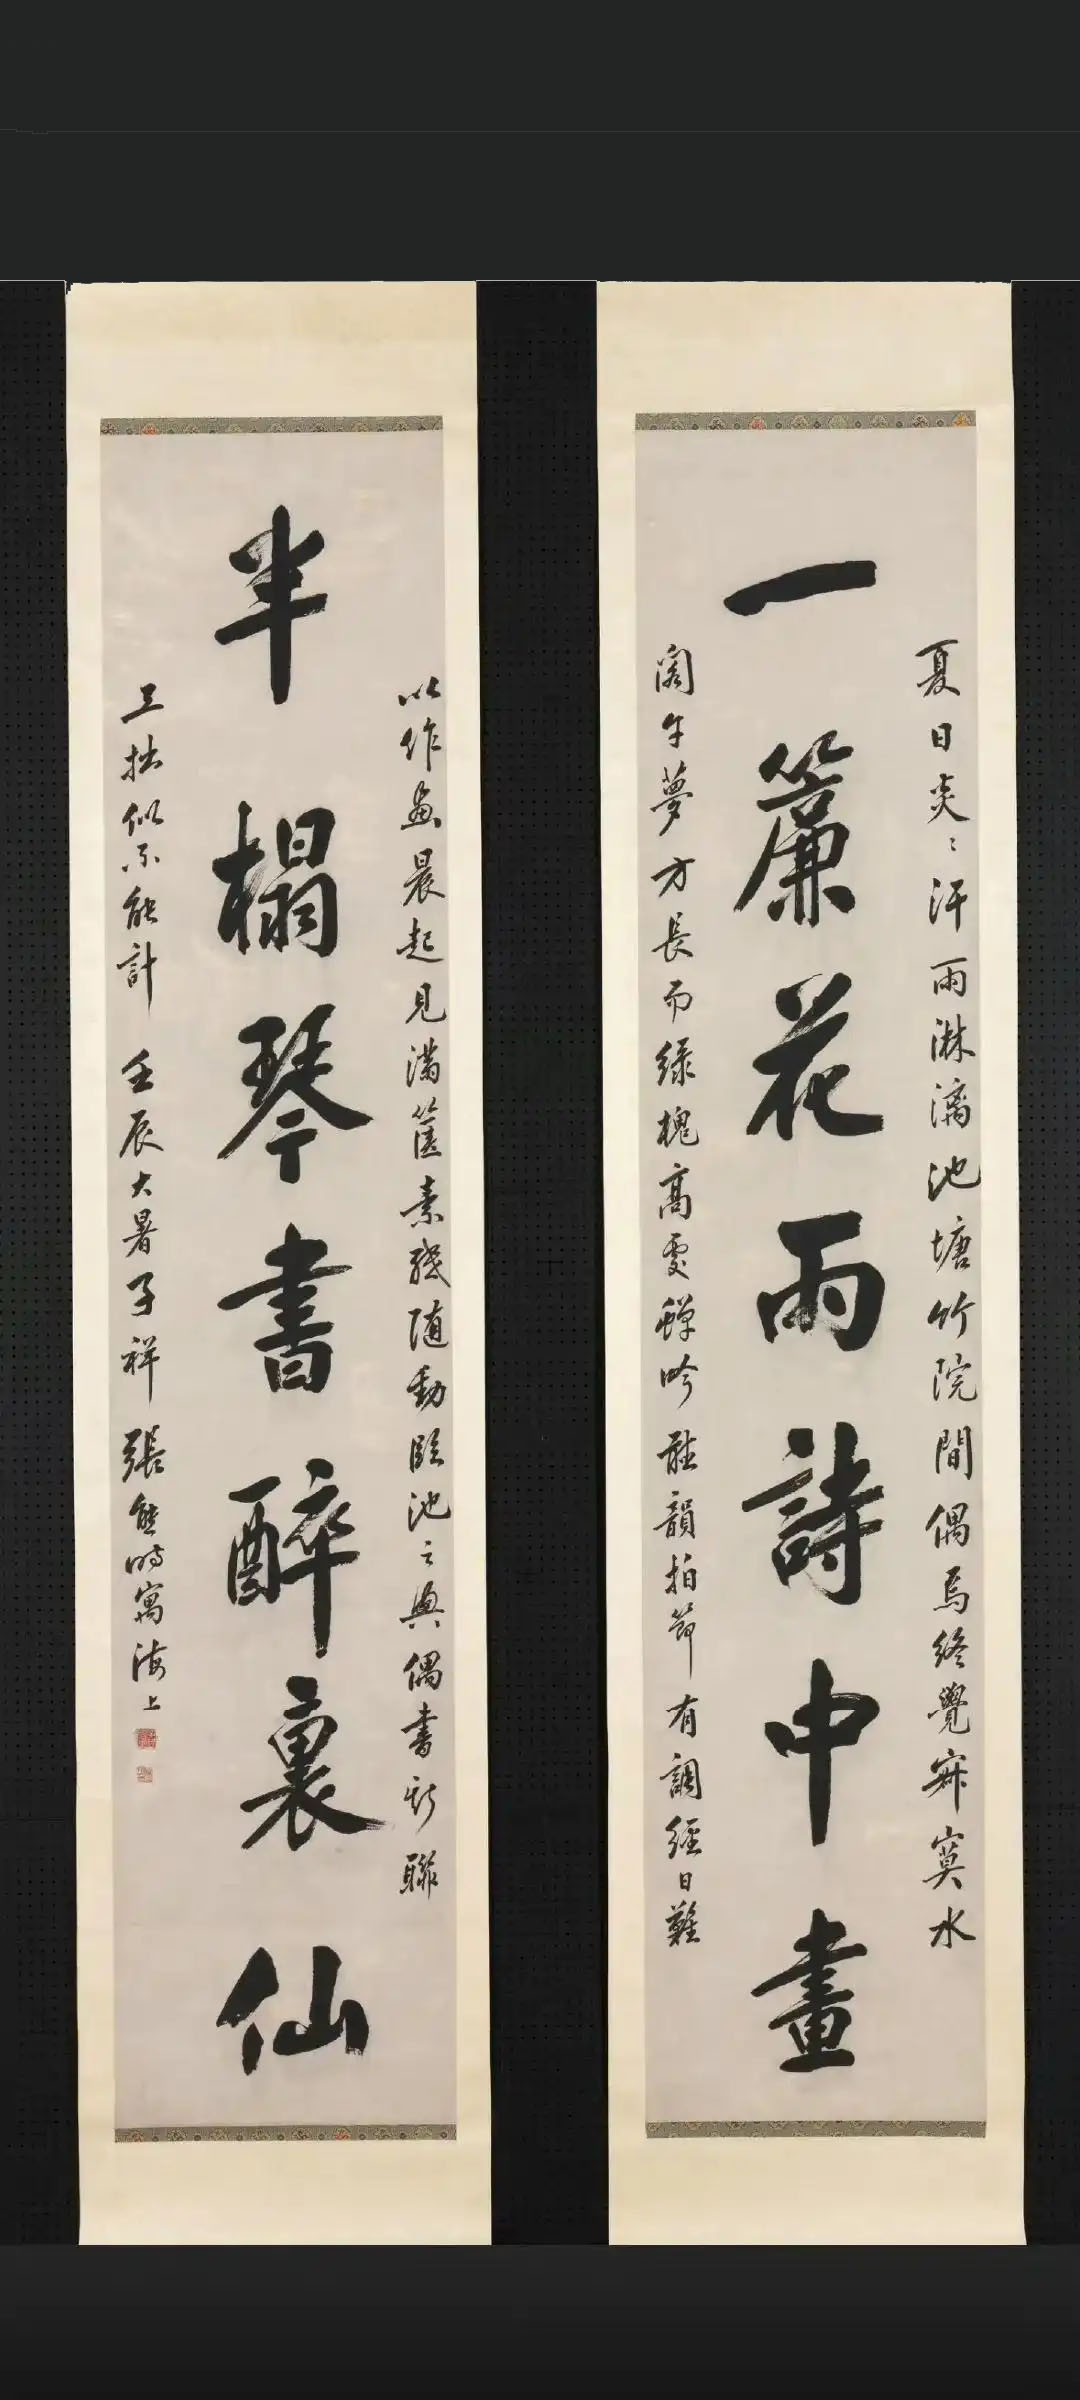 一簾花雨詩中畫
夏日炎〻汗雨淋漓池塘竹院間偶焉終覺寂寞水
閣午夢方長而綠槐高處蟬吟聲韻拍節有調經日難
半榻琴書醉裏仙
以作畫晨起見滿篋素殘隨動臨池之興偶書此聯
工拙似不能計 壬辰大暑子祥張熊時寓海上